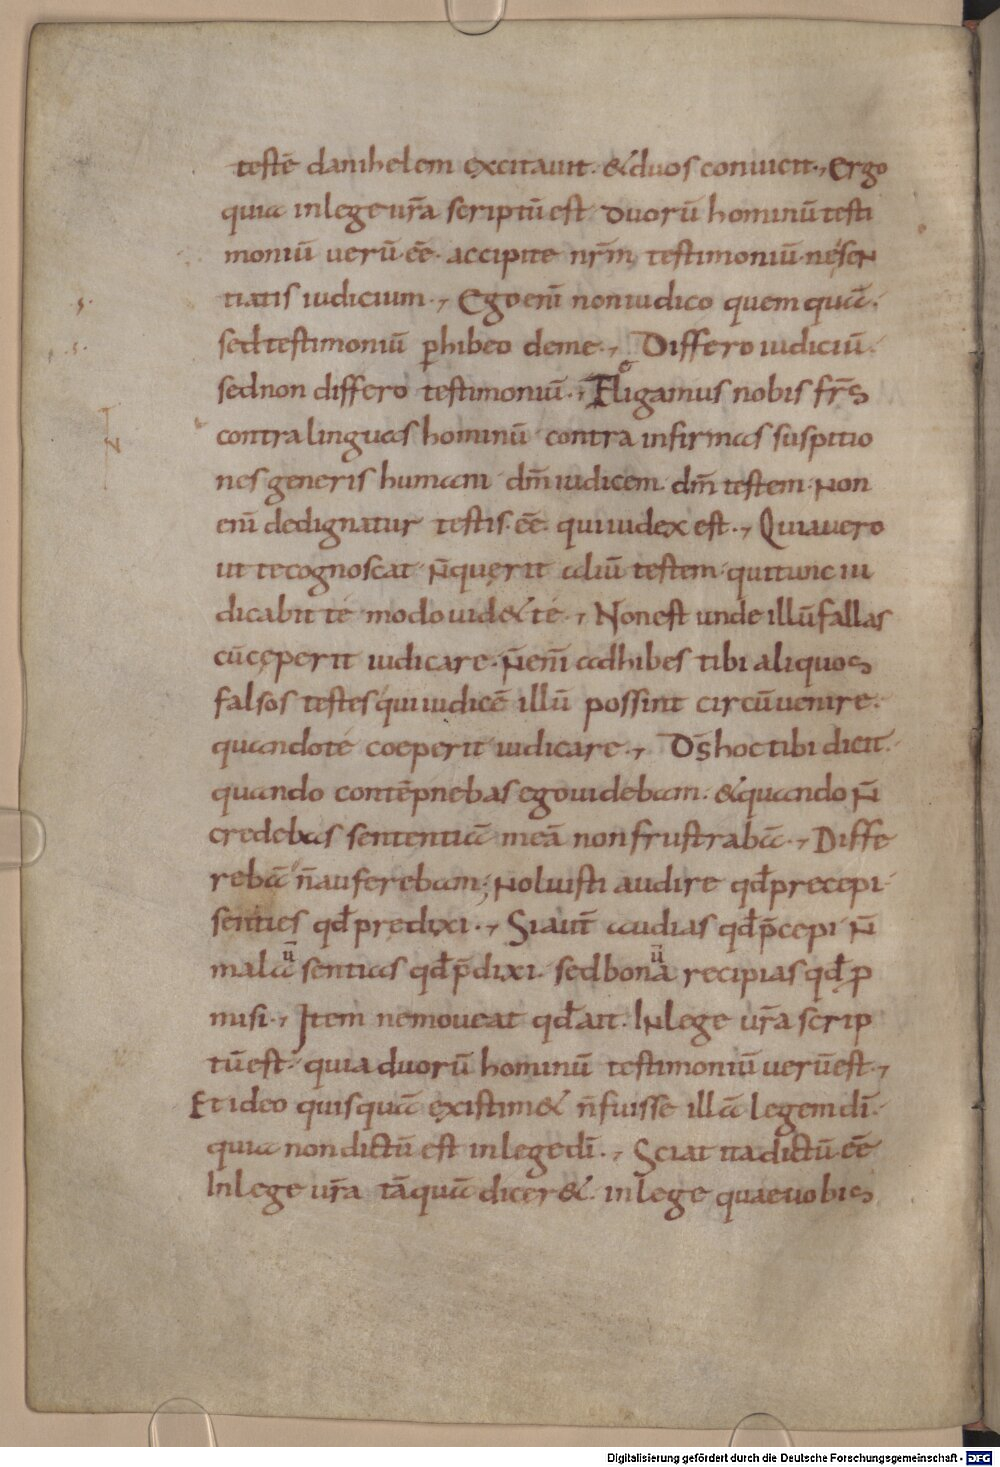 testē danihelem excitauit· &duos conuicit·, Ergo
quia inlege ur̄a scriptū est duorū hominū testi
moniū uerū·eē· accipite nr̄m testimoniū·nésen
tiatis iudicium·, Ego eni̅ noniudico quem quā·
sed testimoniū ꝑhibeo deme·, Differo iudiciū·
sednon differo testimoniū·, Eligamus nobis fr̄s
contra linguas hominū contra infirmas suspitio
nes generis humani dm̄ iudicem· dm̄ testem· Non
eni̅ dedignatur testis·eē· qui iudex est·, Quia uero
ut tecognoscat n̄ querit aliū testem· qui tunc iu
dicabit té modo uid& té·, Nonest unde illū fallas
cū cęperit iudicare· n̄ eni̅ adhibes tibi aliquos
falsos testes qui iudicē illū possint circū uenire·
quando té coeperit iudicare·, Ds̄ hoc tibi dicit·
quando contēpnebas ego uidebam· &quando n̄
credebas sententiā meā non frustrabā·, Diffe
rebā n̄ auferebam; Noluisti audire qd̄ precepi·
senties qd̄ predixi·, Si aut̄ audias qd̄ p̄cepi n̄
malā sentias qd̄ p̄dixi· sed bona recipias qd̄ ꝓ
misi·, Item nemoueat qd̄ ait· Inlege ur̄a scrip
tū est· quia duorū hominū testimoniū uerū est·,
Et ideo quisquā existim& n̄ fuisse illā legem di̅·
quia non dictū est inlege di̅·, Sciat ita dictū·eē
Inlege ur̄a tāquā dicer& inlege quae uobis
ꞅ·
·ꞅ·
N
Digitalisierung gefördert durch die Deutsche Forschungsgemeinschaft - DFG